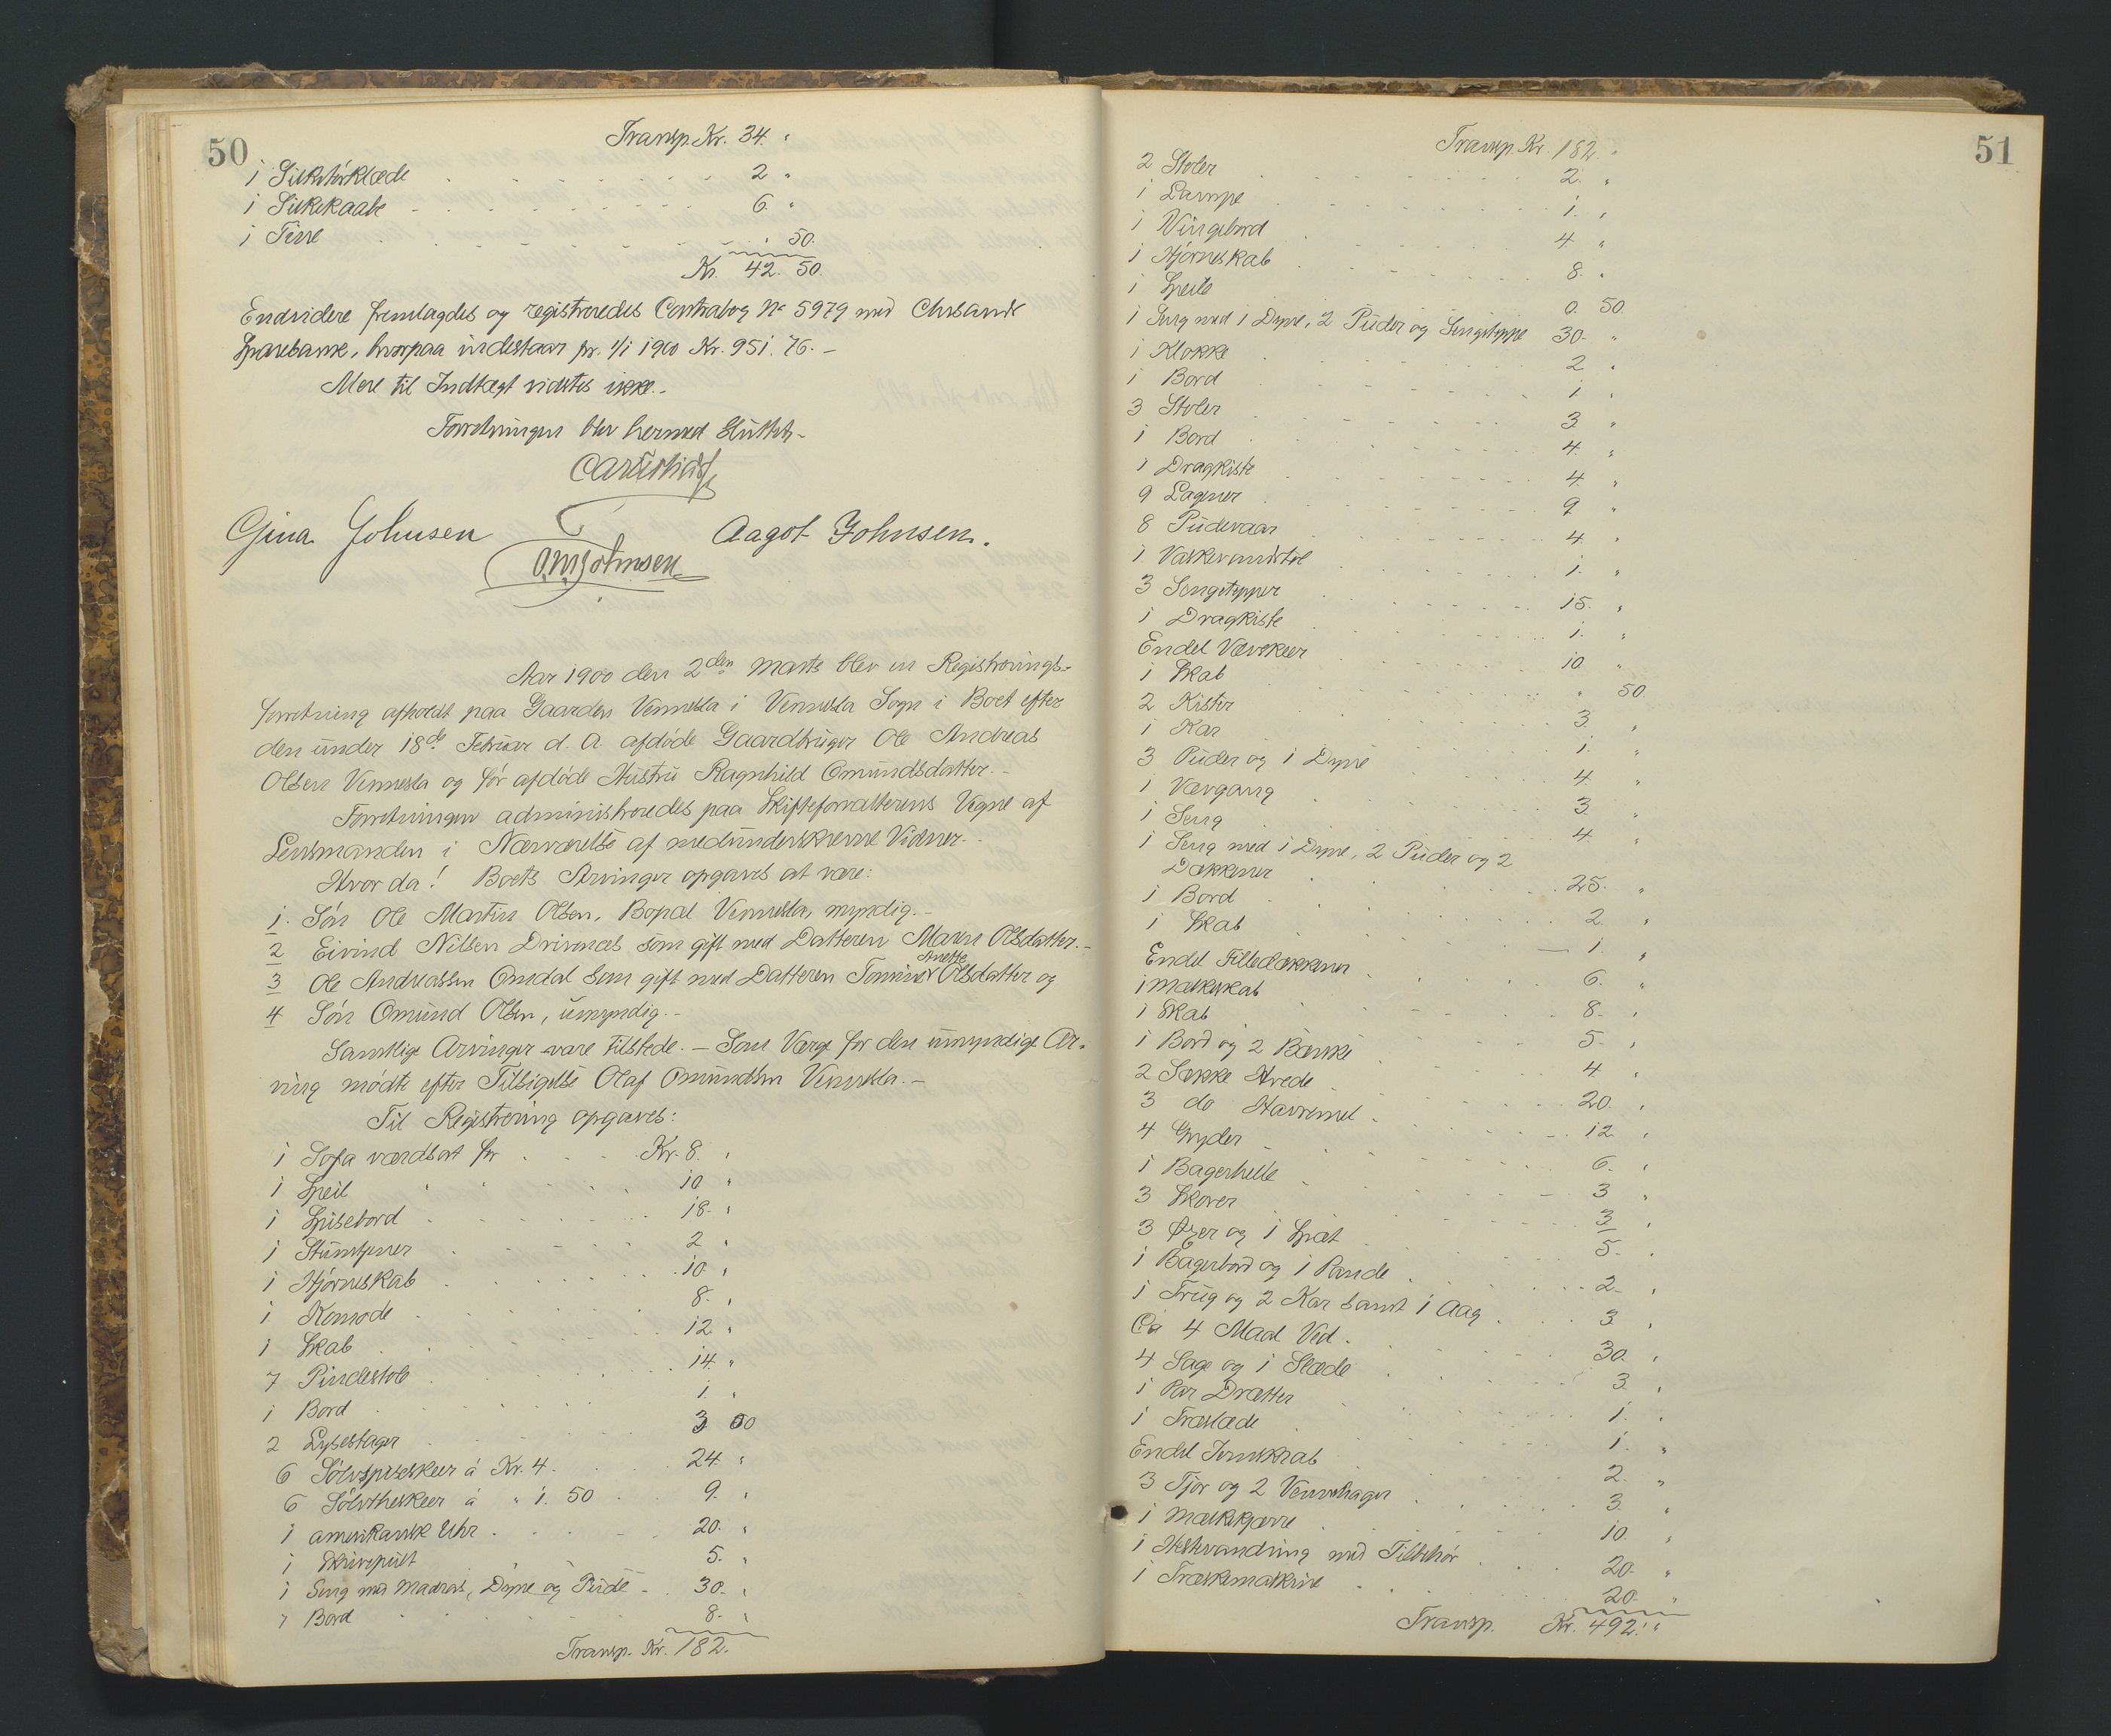 50
Transp. Kr. 34. "
1 Silketørklæde 2 "
1 Silkekaabe 6. "
1 Tine " 50.
Kr. 42. 50.
Endvidere fremlagdes og registreredes Contrabog No 5979 med Chrsands
Sparebank, hvorpaa indestaar pr. 1/1 1900 Kr. 951. 76. -
Mere til Indtægt vidstes ikke. -
Forretningen blev hermed sluttet. -
Gina Johnsen Aagot Johnsen.
O. M. Johnsen
Aar 1900 den 2den Marts blev en Registrerings-
forretning afholdt paa Gaarden Vennesla i Vennesla Sogn i Boet efter
den under 18de Februar d. A. afdøde Gaardbruger Ole Andreas
Olsen Vennesla og før afdøde Hustru Ragnhild Omundsdatter. -
Forretningen administreredes paa Skifteforvalterens Vegne af
Lensmanden i Nærværelse af medunderskrevne Vidner. -
Hvor da! Boets Arvinger opgaves at være:
1. Søn Ole Martin Olsen, Bopæl Vennesla, myndig. -
2 Eivind Nilsen Drivenæs som gift med Datteren Maren Olsdatter. -
3 Ole Andreassen Omdal som gift med Datteren Tomine Anette Olsdatter og
4 Søn Omund Olsen, umyndig. -
Samtlige Arvinger vare tilstede. - Som Værge for den umyndige Ar-
ving mødte efter Tilsigelse Olaf Omundsen Vennesla. -
Til Registrering opgaves:
1 Sofa værdsat for Kr. 8. "
1 Speil 10 "
1 Spisebord 18. "
1 Stumtjener 2 "
1 Hjørneskab 10. "
1 Komode 8. "
1 Skab 12. "
7 Pindestole 14. "
1 Bord 1. "
2 Lysestager 3 00
6 Sølvspiseskeer á Kr. 4. 24. "
6 Sølvtheskeer á " 1. 50 9. "
1 amerikansk Uhr 20. "
1 Skrivepult 5. "
1 Seng med Madras, Dyne og Pude 30. "
1 Bord 8. "
Transp. Kr. 182.
51
Transp. Kr. 182. "
2 Stoler 2. "
1 Lampe 1. "
1 Vingebord 4. "
1 Hjørneskab 8. "
1 Speile 0. 50.
1 Seng med 1 Dyne, 2 Puder og Sengeteppe 30. "
1 Klokke 2. "
1 Bord 1 "
3 Stoler 3 "
1 Bord 4. "
1 Dragkiste 4. "
9 Lagener 9. "
8 Pudevaar 4. "
1 Vaskevandstol 1. "
3 Sengetepper 15. "
1 Dragkiste 1. "
Endel Vævskeer 10. "
1 Skab " 50.
2 Kister 3. "
1 Kar 1. "
3 Puder og 1 Dyne 4. "
1 Vævgang 3. "
1 Seng 4. "
1 Seng med 1 Dyne, 2 Puder og 2
Dækkener 25. "
1 Bord 2. "
1 Skab 1. "
Endel Filledækkener 6. "
1 Melkeskab 8. "
1 Skab 5. "
1 Bord og 2 Bænke 4 "
2 Sække Hvede 20. "
3 do Havremel 12. "
4 Gryder 6. "
1 Bagerhelle 3 "
3 Skover 3 "
3 Øxer og 1 Spæt 5. "
1 Bagerbord og 1 Pande 2. "
1 Trug og 2 Kar samt 1 Aag 3. "
Ca 4 Maal Ved 30. "
4 Sage og 1 Slæde 3. "
1 Par Drætter 1. "
1 Træslæde 1. "
Endel Jernskrab 2. "
3 Tjor og 2 Vendehager 3. "
1 Melkekjærre 10. "
1 Hestvandring med Tilbehør 20. "
1 Træskemaskine 20. "
Transp. Kr. 492. "